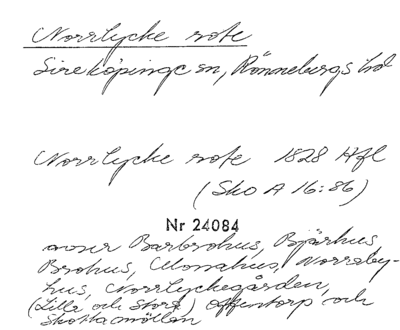 Norrlycke rote
Sireköpinge sn, Rönnebergs hd
Norrlycke rote 1828 Hfl
(Sko A 16:86)
Nr 24084
avser Barbrohus, Björhus
Brohus, Monahus, Norraby-
hus, Norrlyckegården,
(Lilla och Stora) Offentorp och
Skottamöllan